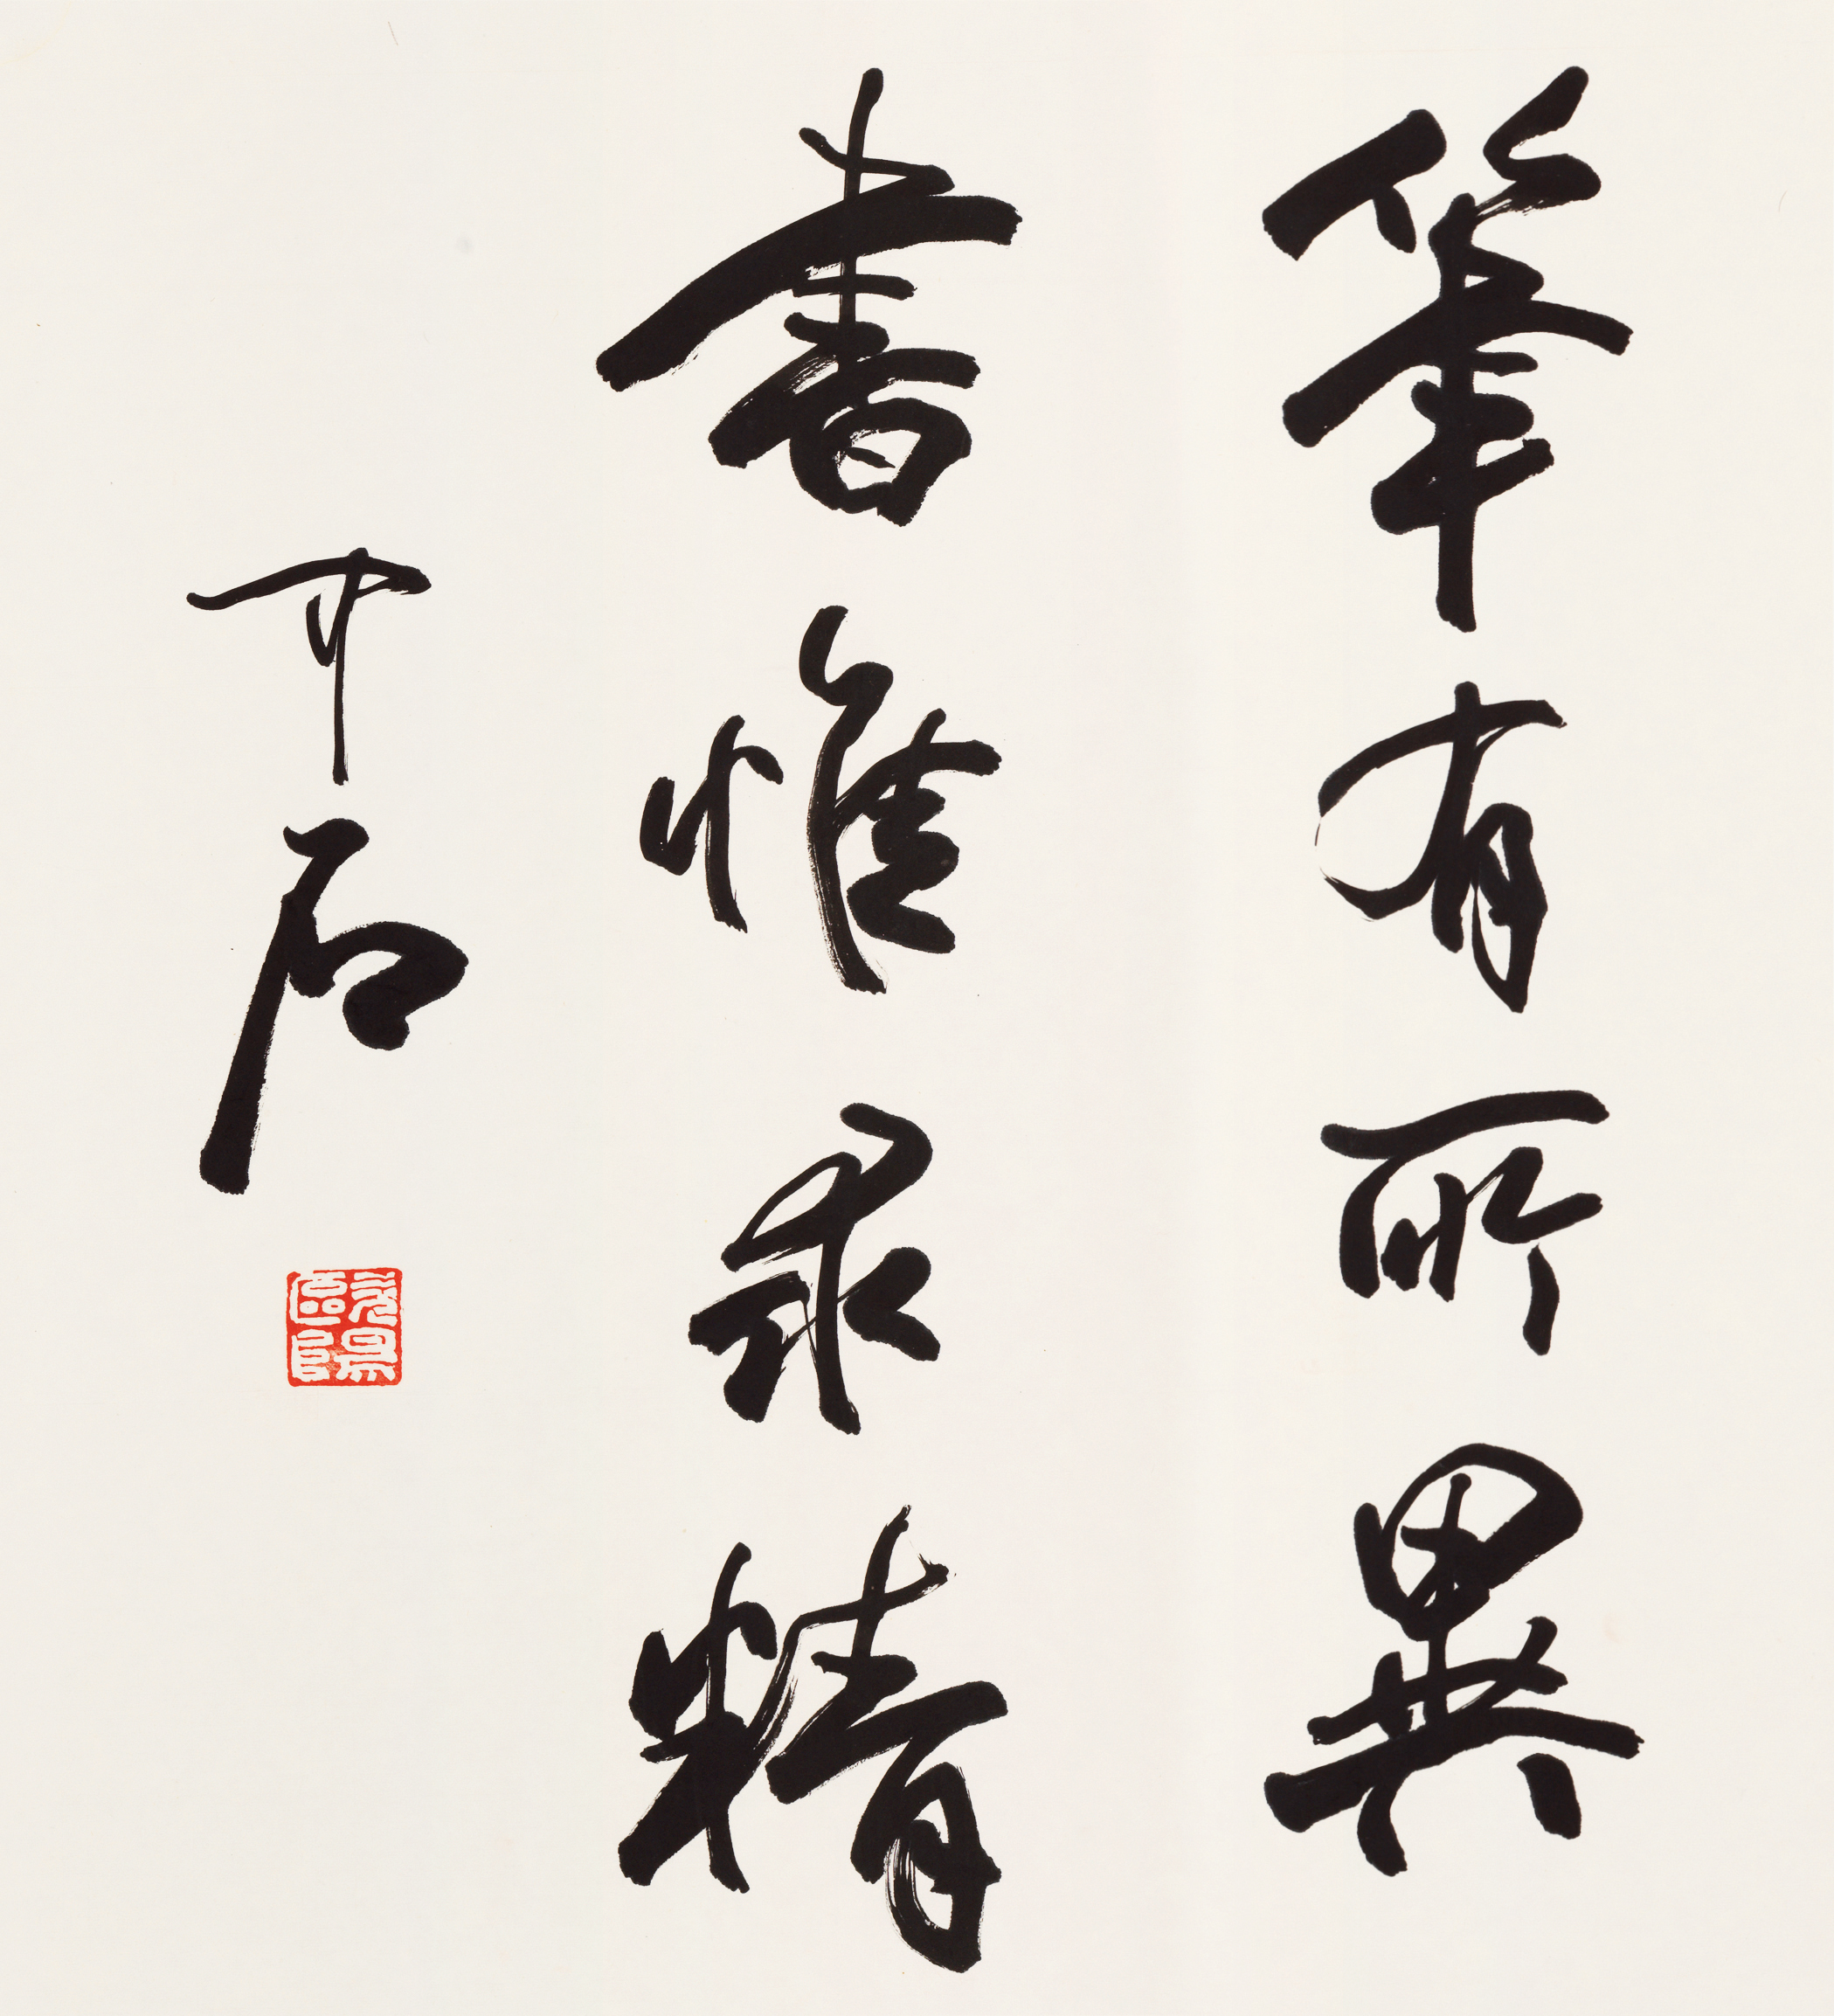 筆有所異
書惟求精
中石
歐陽